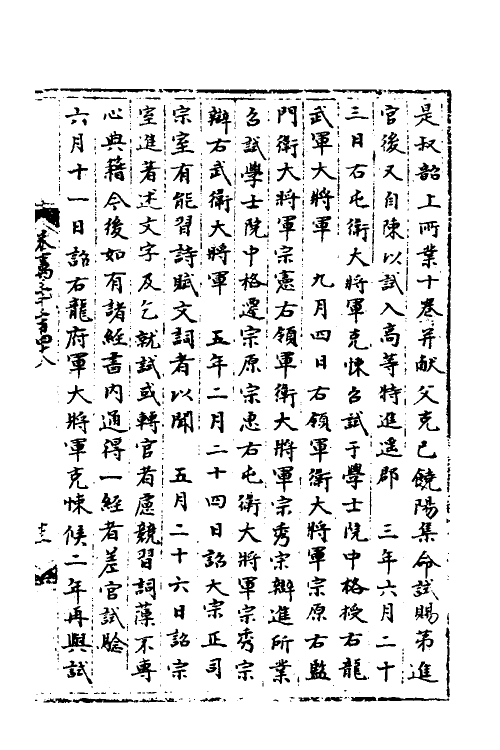 是叔韶上所業十卷并献父克己饒陽集命試賜第進
官後又自陳以試入高等特進遥郡　三年六月二十
三日右屯衛大將軍克悚召試于學士院中格授右龍
武軍大將軍　九月四日右領軍衛大將軍宗原右監
門衛大將軍宗憲右領軍衛大將軍宗秀宗辯進所業
召試學士院中格遷宗原宗惠右屯衛大將軍宗秀宗
辯右武衛大將軍　五年二月二十四日詔大宗正司
宗室有能習詩賦文詞者以聞　五月二十六日詔宗
室進著述文字及乞就試或轉官者慮競習詞藻不專
心典籍今後如有諸經書内通得一經者差官試驗
六月十一日詔右龍府軍大將軍克悚候二年再與試